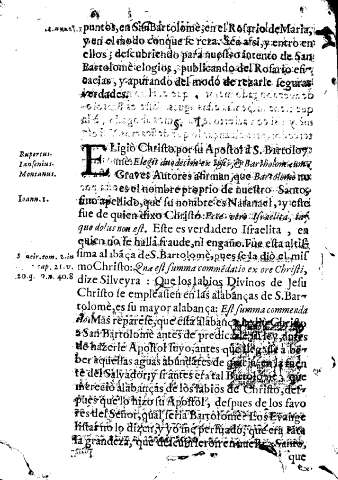 puntos, en San Bartolomè, en el Rosario de Maria,
y en el modo con que se reza. Sea assi, y entro en
ellos; descubriendo para nuestro intento de San
Bartolomè elogios, publicando del Rosario efi-
cacias, y apurando del modo de rezarle seguras
verdades.
§. I.
ELigiò Christo por su Apostol à S. Bartolo-
mè: Elegit duodecim ex ipsis, & Bartholomæum.
Rupertus.
Iansenius.
Montanus.
Graves Autores afirman, que Bartolomè no
es el nombre proprio de nuestro Santo,
Ioann. 1.
sino apellido, que su nombre es Natanael, y este
fue de quien dixo Christo: Este vero Israelita,
dolus non est. Este es verdadero Israelita, en
quien no se halla fraude, ni engaño. Fue esta altis-
sima alabãça de S. Bartolomè, pues se la diò el mis-
mo Christo: Quæ est summa commẽdatio ex ore Christi,
cap. 21. v.
dize Silveyra: Que los labios Divinos de Jesu
Christo se empleassen en las alabanças de S. Bar-
tolomè, es su mayor alabança: Est summa commenda
Mas reparese, que esta alabança
San Bartolomè antes de predicar
de hazerle Apostol suyo, antes que
ber aquellas aguas abundãtes de
te del Salvador; y si antes era tal Bartolomè, que
mereciò alabanças de los labios de Christo, des-
pues que lo hizo su Apostol, despues de los favo
res del Señor, qual seria Bartolomè? Los Evange
listas no lo dizen, y yo me persuado, que era tãta
la grandeza, que
que